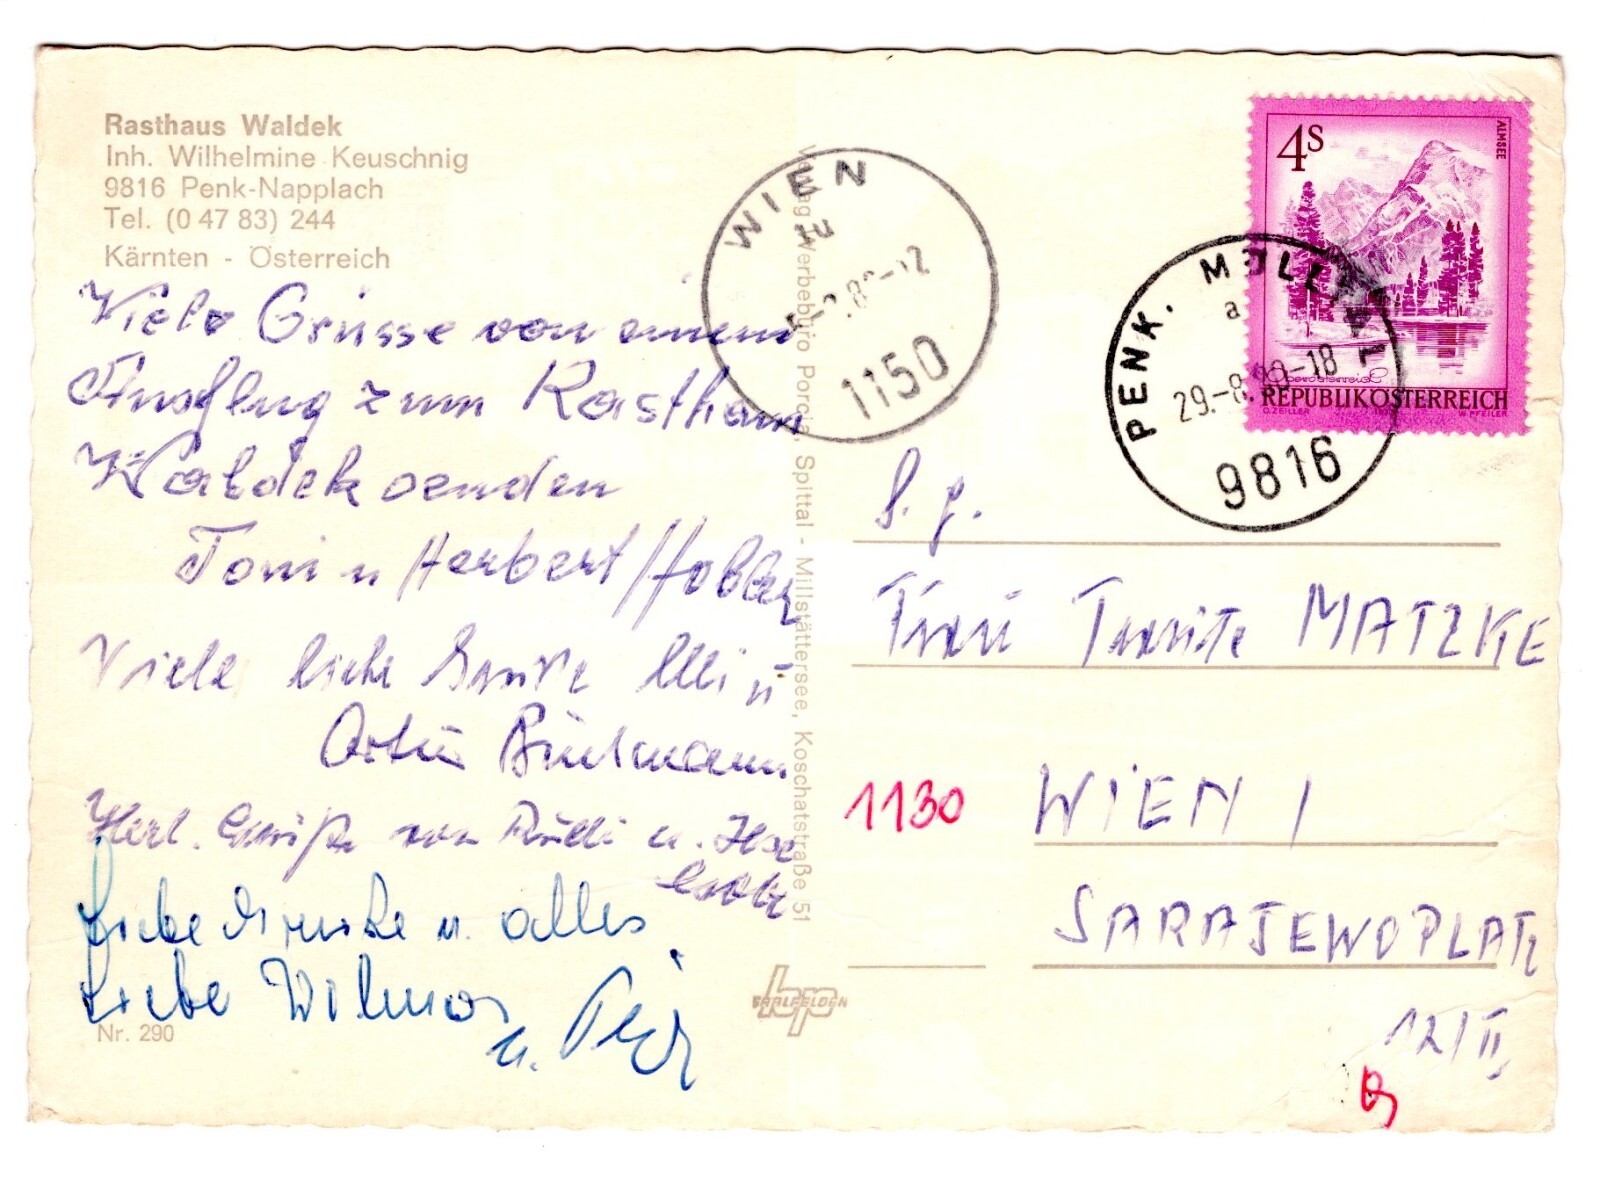 Rasthaus Waldek
Inh. Wilhelmine Keuschnig
9816 Penk-Napplach
Tel. (0 47 83) 244
Kärnten - Österreich
Viele Grüsse von einem
Ausflug zum Rasthaus
Waldek senden
Toni u Herbert
Viele liebe Elli u
Artur
Herzl. Grüße von Rudi u. Ilse
Liebe u. alles
Liebe Wilma
u.
Nr. 290
Verlag Werbebüro Porcia, Spittal - Millstättersee, Koschatstraße 51
WIEN
1150
4S
ALMSEE
REPUBLIK ÖSTERREICH
O.ZEILLER
W.PFEILER
PENK, MÖLLTAL
a
29.-8. -18
9816
S. g.
Frau MATZKE
1130 WIEN
SARAJEWOPLATZ
12/II
SAALFELDEN